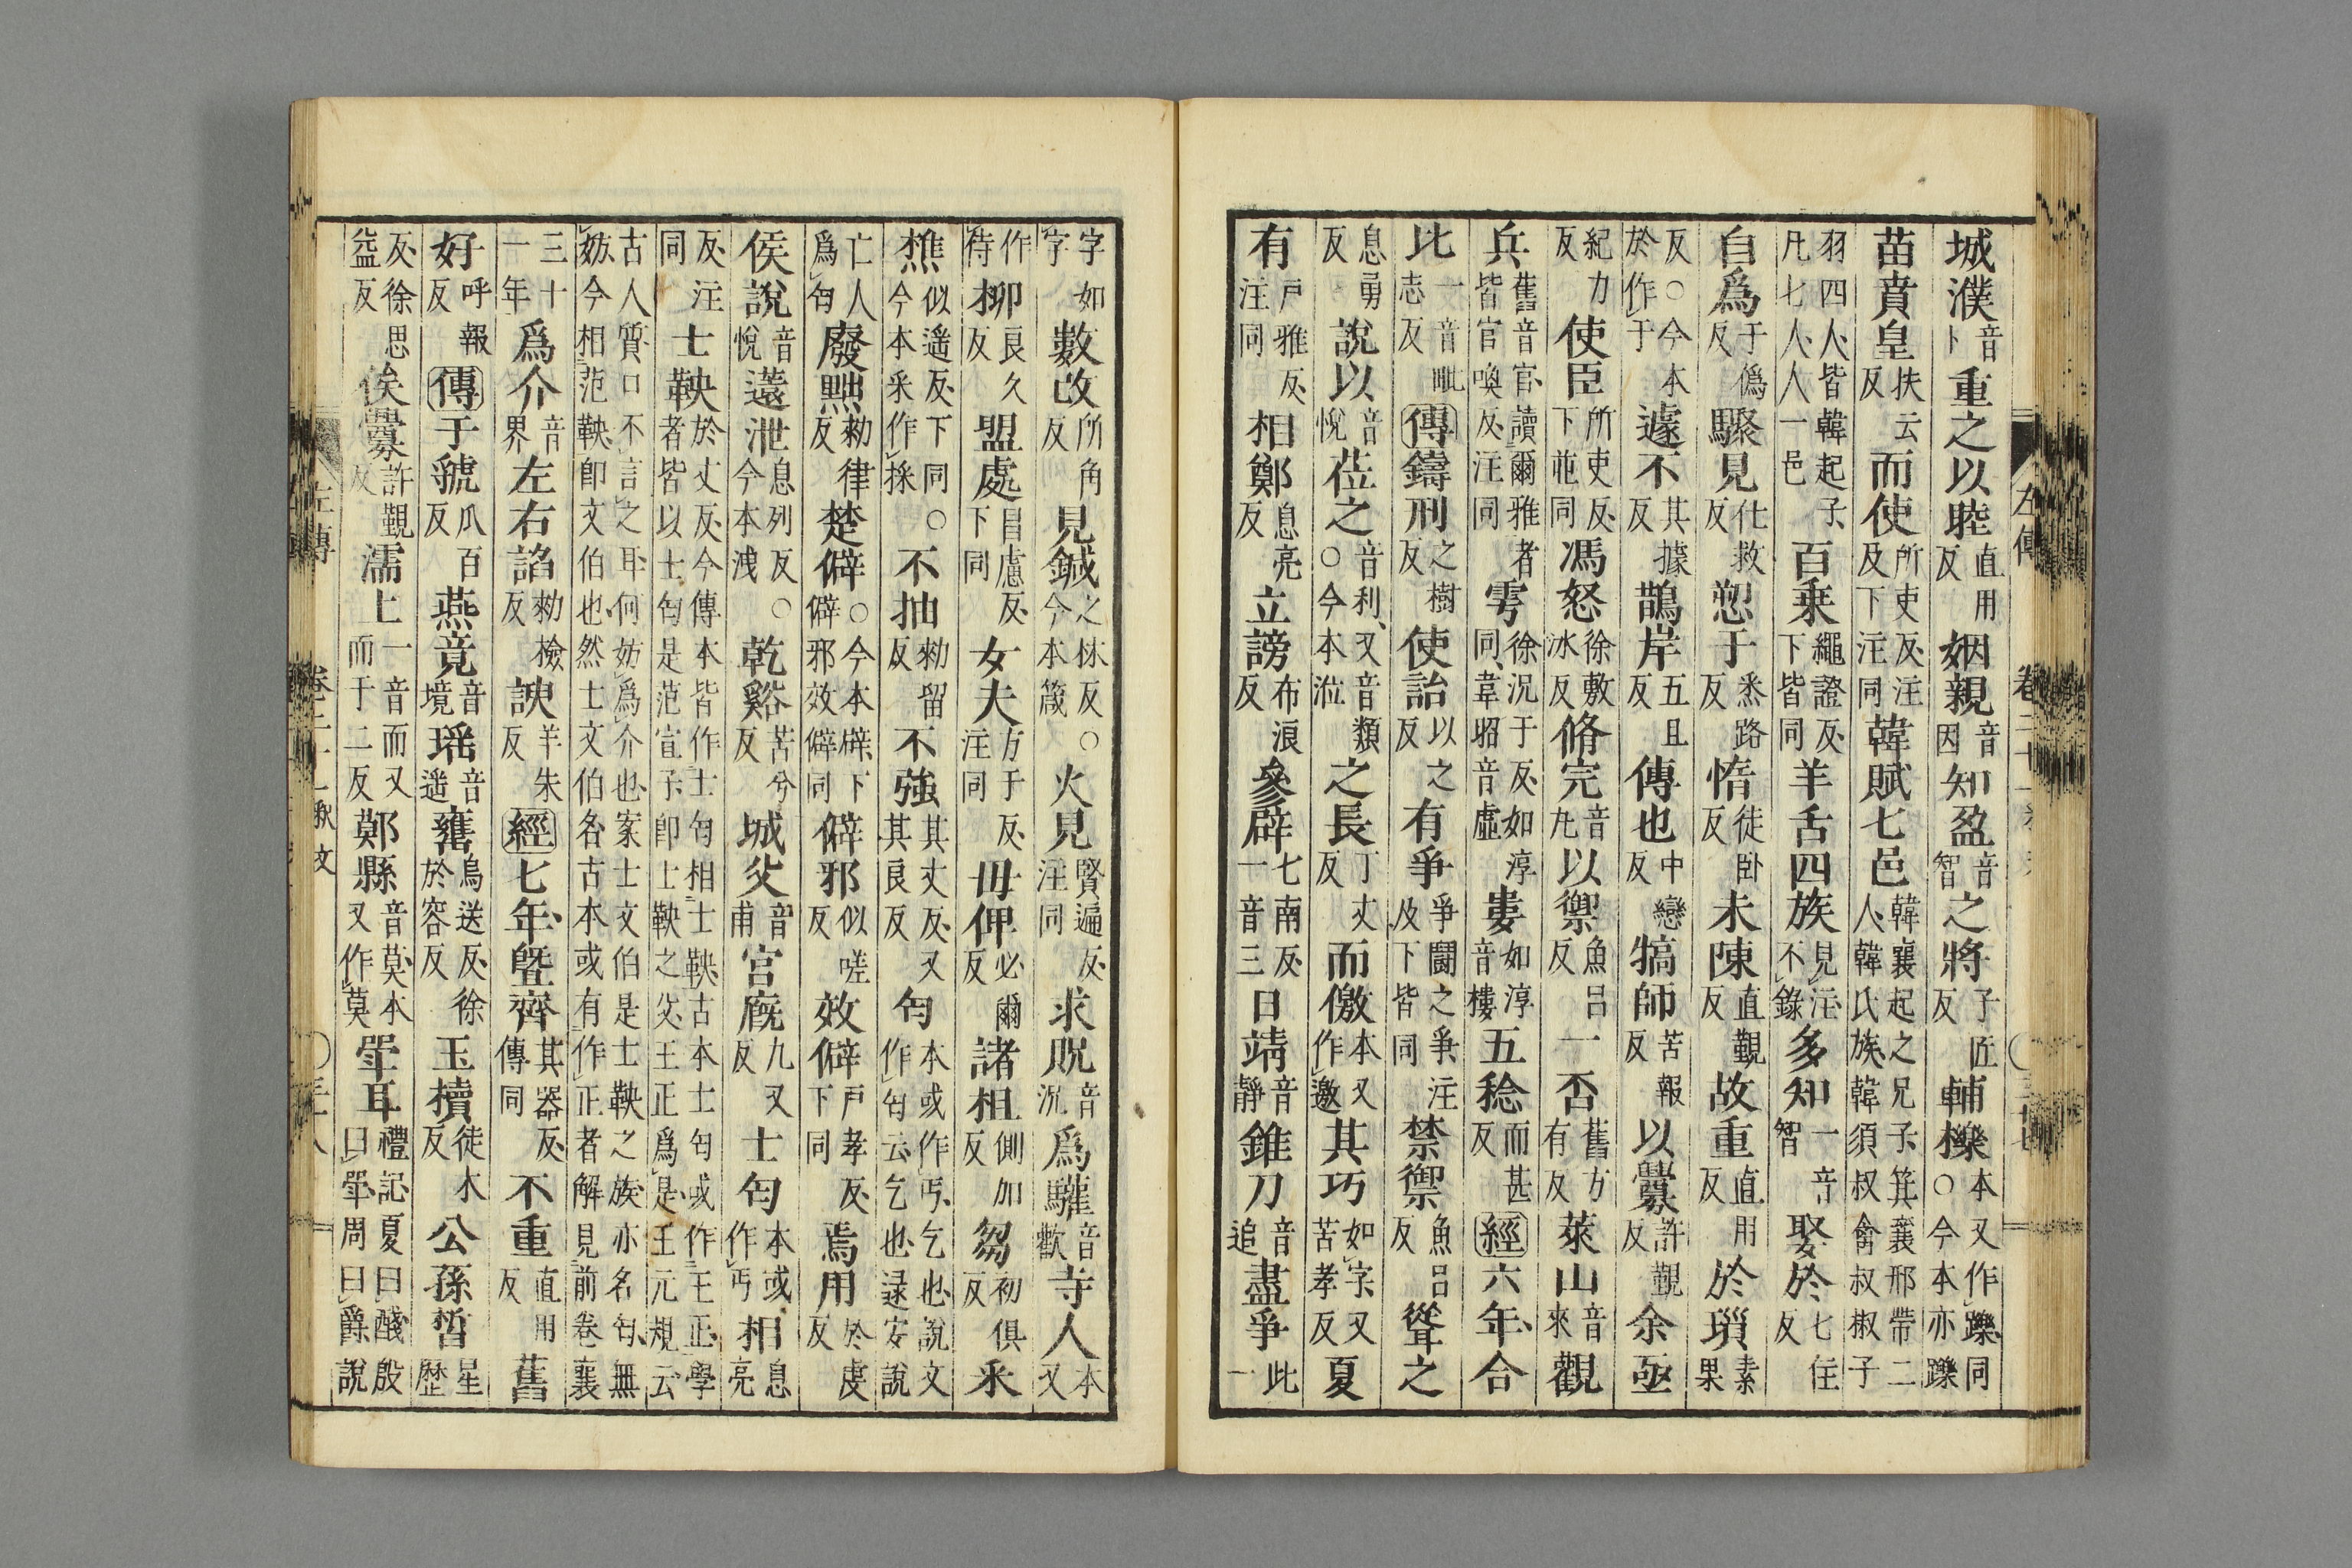 城濮音卜重之以睦直用反姻親音因知盈音智之將子匠反輔櫟本又作躒同○今本亦躒
苗賁皇扶云反而使所吏反注及下注同韓賦七邑韓襄起之兄子箕襄邢帶二人韓氏族韓須叔禽叔椒子
羽四人皆韓起子凡七人人一邑百乘繩證反下皆同羊舌四族見注不錄多知一音智娶於七住反
自爲于僞反驟見仕救反恕于悉路反惰徒臥反未陳直覲反故重直用反於瑣素果
反○今本於作于遽不其據反鵲岸五旦反傳也中戀反犒師苦報反以釁許覲反余亟
紀力反使臣所吏反下並同馮怒徐敷冰反脩完音丸以禦魚呂反一否舊方有反萊山音來觀
兵舊音官讀爾雅者皆官喚反注同雩徐況于反如淳同韋昭音虛婁如淳音樓五稔而甚反經六年合
比一音毗志反傳鑄刑之樹反使詒以之反有爭爭鬬之爭注及下皆同禁禦魚呂反聳之
息勇反說以音悅莅之音利又音類○今本涖之長丁丈反而儌本又作邀其巧如字又苦孝反夏
有戶雅反注同相鄭息亮反立謗布浪反參辟七南反一音三日靖音靜錐刀音追盡爭此一
左傳
字如字數改所角反見鍼之林反○今本箴火見賢遍反注同求貺音況爲驩音歡寺人本又
作侍柳良久反盟處昌慮反下同女夫方于反注同毋俾必爾反諸柤側加反芻初俱反采
樵似遙反下同○今本采作採不抽勑留反不強其丈反又其良反匄本或作丐乞也說文作匄云乞也逯安說
亡人爲匄廢黜勑律反楚僻○今本辟下僻邪效僻同僻邪似嗟反效僻戶孝反下同焉用於虔反
侯說音悅薳泄息列反○今本洩乾谿苦兮反城父音甫宮廄九又反士匄本或作丐相息亮
反注同士鞅於丈反今傳本皆作士匄相士鞅古本士匄或作王正學者皆以士匄是范宣子卽士鞅之父王正爲是王元規云
古人質口不言之耳何妨爲介也家士文伯是士鞅之族亦名匄無妨今相范鞅卽文伯也然士文伯名古本或有作正者解見前卷襄
三十一年爲介音界左右諂勑檢反諛羊朱反經七年曁齊其器反傳同不重直用反舊
好呼報反傳于虢瓜百反燕竟音境瑤音遙甕烏送反徐於容反玉櫝徒木反公孫晳星歷
反徐思益反俟釁許覲反濡上一音而又而于二反鄭縣音莫本又作莫斝耳禮記夏曰醆殷曰斝周曰爵說